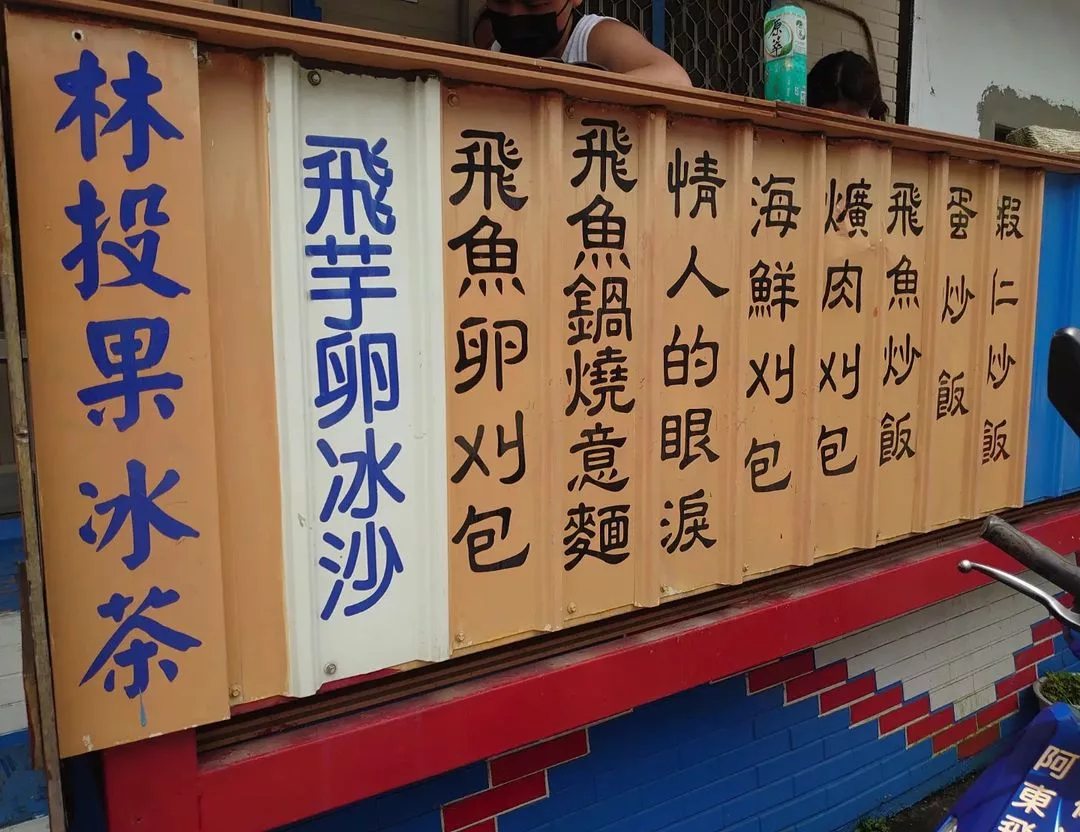 林投果冰茶
飛芋卵冰沙
飛魚卵刈包
飛魚鍋燒意麵
情人的眼淚
海鮮刈包
爌肉刈包
飛魚炒飯
蛋炒飯
蝦仁炒飯
原萃
阿東飛